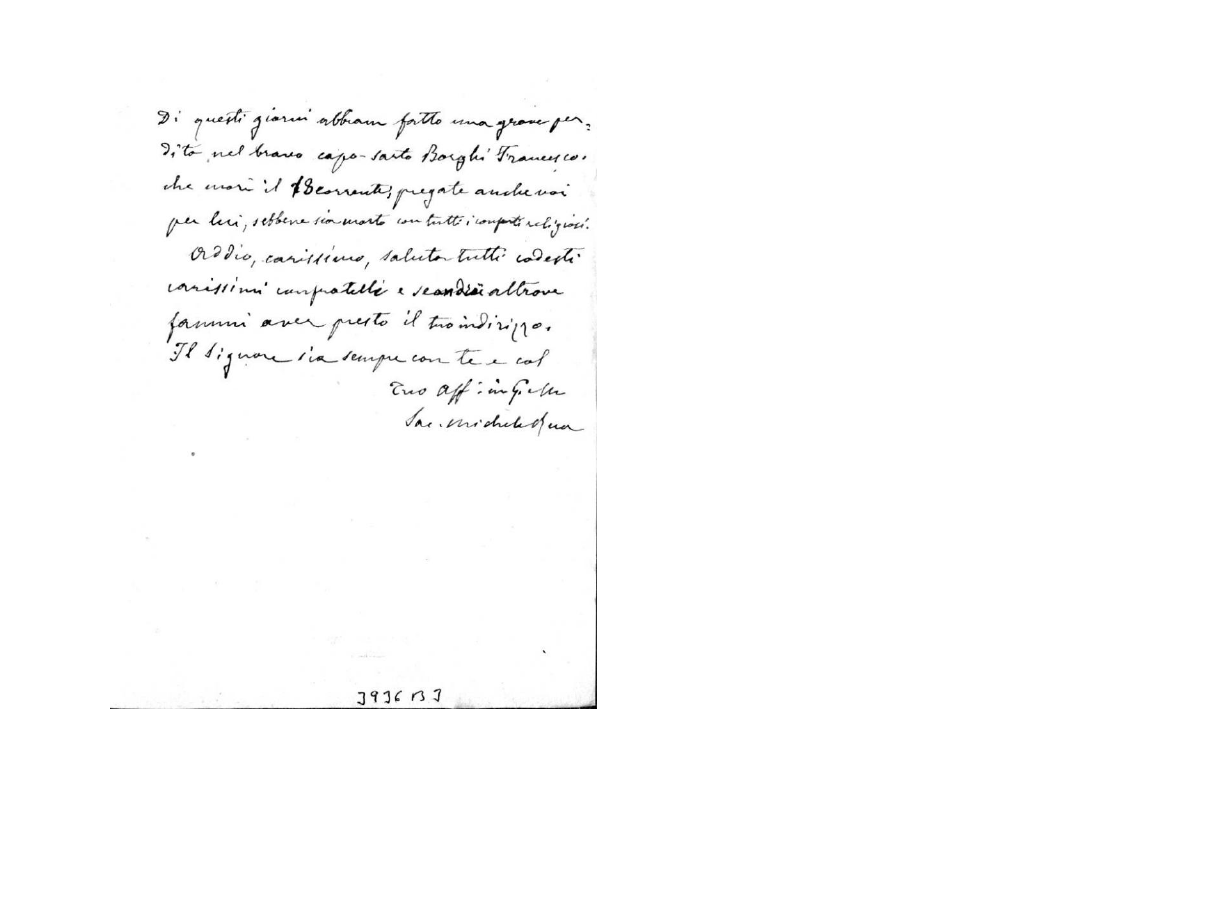 Di questi giorni abbiam fatto una grave per-
dita nel bravo capo-sarto Borghi Francesco.
che morì il 18 corrente; pregate anche voi
per lui, sebbene sia morto con tutti i conforti religiosi.
Addio, carissimo, saluta tutti codesti
carissimi confratelli e se andrai altrove
fammi aver presto il tuo indirizzo.
Il Signore sia sempre con te e col
Tuo Aff: in G. e M
Sac. Michele Rua
3936 B 3